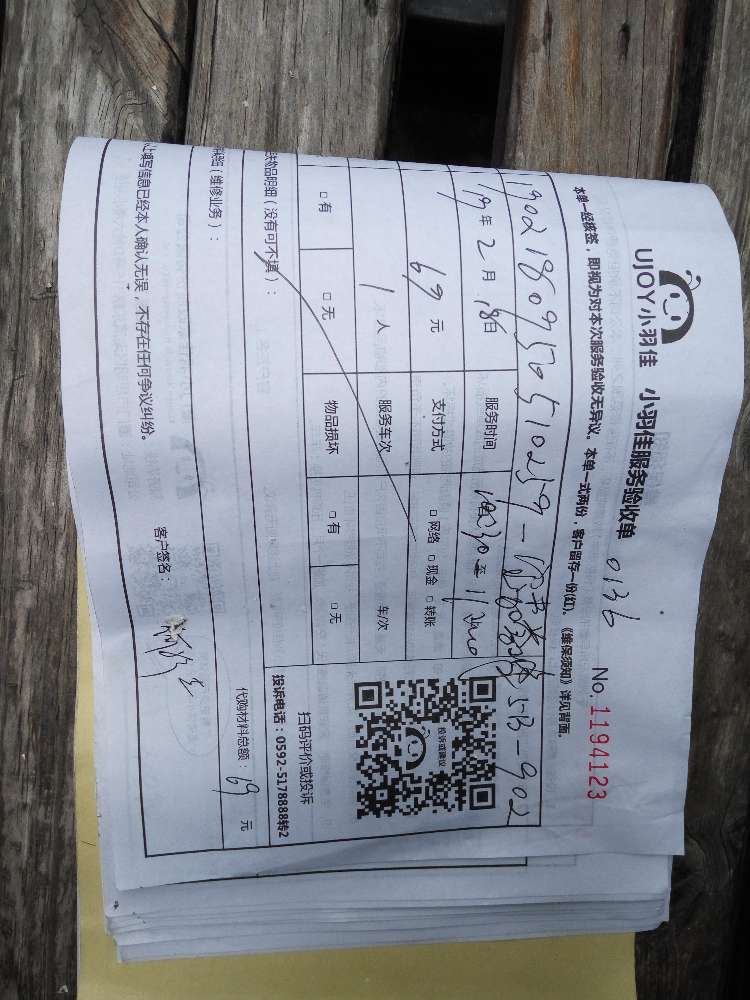 UJOY小羽佳 小羽佳服务验收单 0136
No. 1194123
本单一经核签，即视为对本次服务验收无异议。本单一式两份，客户留存一份(红)。《维保须知》详见背面。
5B-902
19年2月18日 服务时间
69元 支付方式 □网络 □现金 □转账
1人 服务车次 车/次
□有 □无 物品损坏 □有 □无
投诉或建议
扫码评价或投诉
投诉电话：0592-5178888转2
物品明细（没有可不填）：
代购材料总额：69元
（维修业务）：
上填写信息已经本人确认无误，不存在任何争议纠纷。
客户签名：